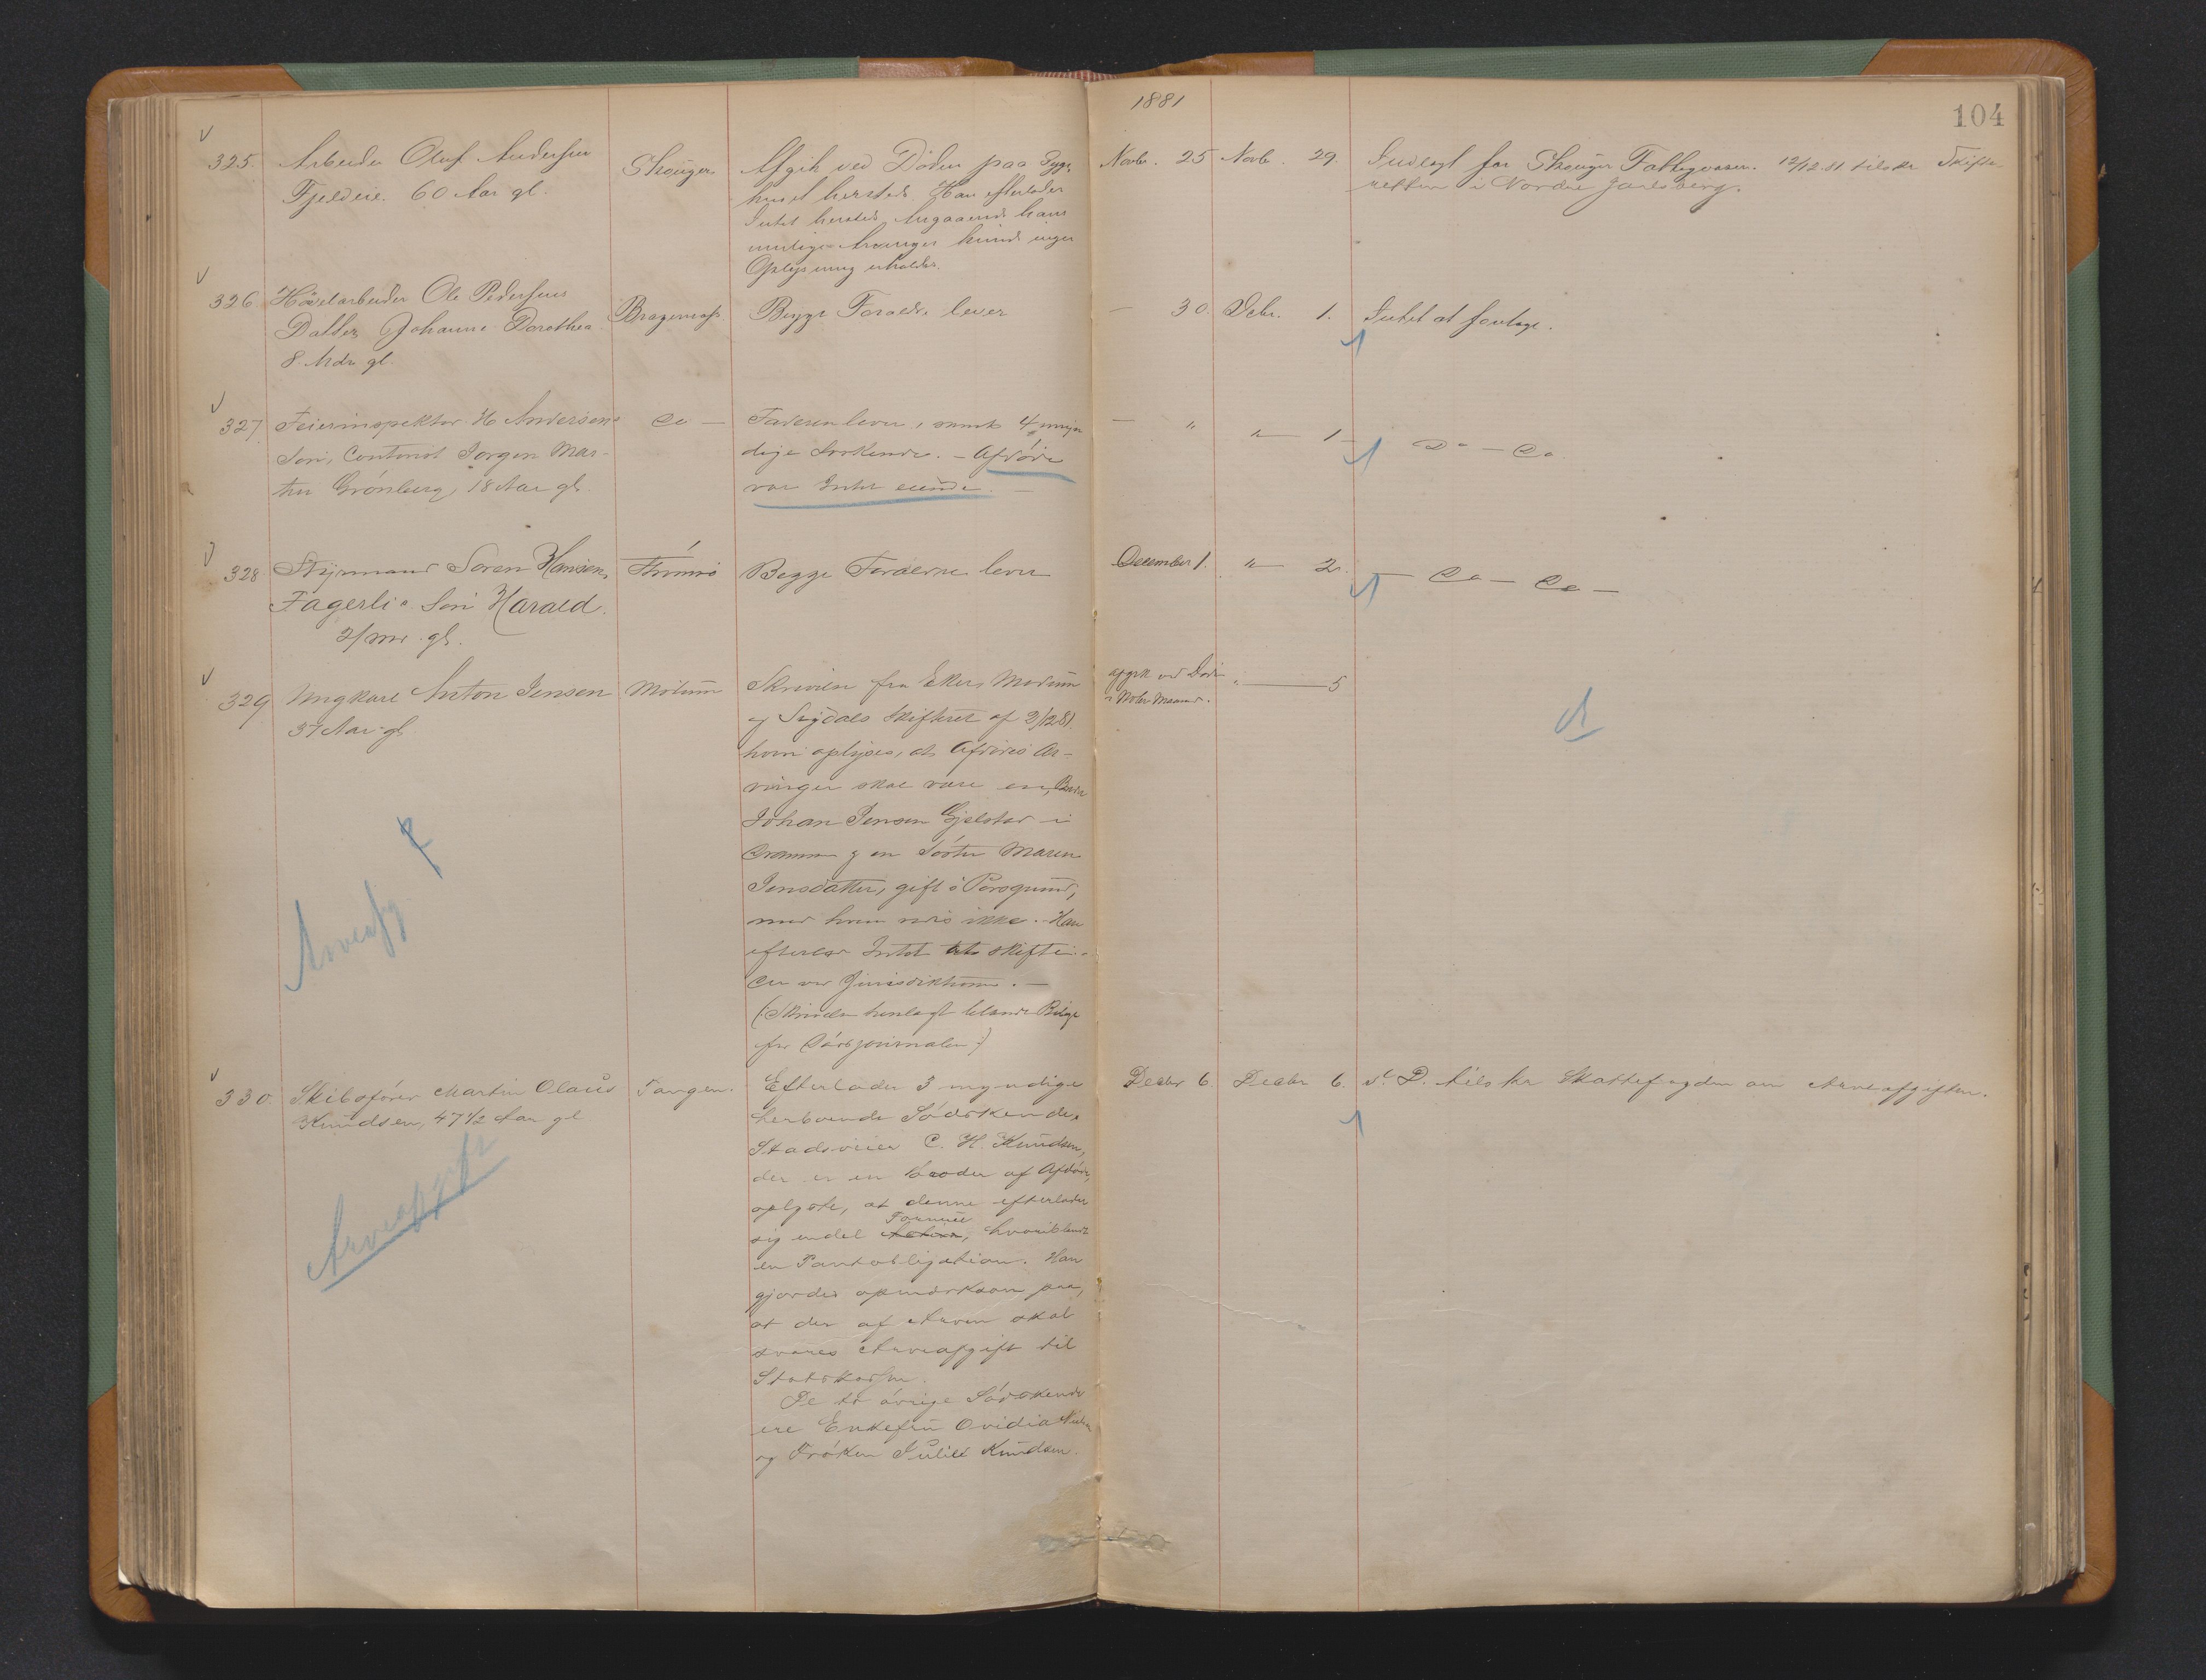 1881
104
325. Arbeider Oluf Andersen
Fjeldeie. 60 Aar gl.
Skouger
Afgik ved Døden paa Syge-
huset hersteds. Han efterlader
Intet hersteds. Angaaende hans
mulige Arvinger kunde ingen
Oplysning erholdes.
Novbr. 25 Novb. 29.
Indlagt for Skouger Fattigvæsen. 12/12 81. tilskr Skifte-
retten i Nordre Jarlsberg.
326 Høvelarbeider Ole Pedersens
Datter Johanne Dorothea
8 Mdr gl.
Bragernæs.
Begge Forældre lever
— 30. Debr. 1. Intet at foretage.
327 Feierinspektør H Andersens
Søn, Contorist Jørgen Mar-
tin Grönberg, 18 Aar gl.
Do —
Faderen lever, samt 4 myn
dige Søskende. — Afdöde
var Intet eiende. —
— " " — 1 — Do — Do.
328 Styrmand Søren Hansen
Fagerlis Søn Harald.
2/mr. gl.
Strømsø
Begge Forældrene lever
December 1. " — 2. — Do — Do —
329 Ungkarl Anton Jensen
37 Aar gl
Modum
Skrivelse fra Eker, Modum
og Sigdals Skifteret af 2/12 81.
hvori oplyses, at Afdødes Ar-
vinger skal være en Broder
Johan Jensen Gjelstad i
Drammen og en Søster Maren
Jensdatter, gift i Porsgrund,
med hvem vides ikke. Han
efterlod Intet til Skifte un-
der Jurisdiktionen. —
(Skrivelsen henlagt blandt Bilge
for Dødsjournalen)
afgik ved Døden
i Novbr Maaned.
" — 5
Arveafg
330. Skibsfører Martin Olaus
Knudsen, 47 1/2 Aar gl
Tangen.
Efterlader 3 myndige
herboende Södskende.
Stadsveier C. H. Knudsen,
der er en broder af Afdöde,
oplyste, at denne efterlader
Formue
sig endel , hvoriblandt
en Pantobligation. Han
gjordes opmærksom paa,
at der af Arven skal
svares Arveafgift til
Statskassen.
De to övrige Södskende
ere Enkefru Ovidia
og Fröken Julie Knudsen.
Decbr 6. Decbr 6. s. D. tilskr Skattefogden om Arveafgiften.
Arveafgift